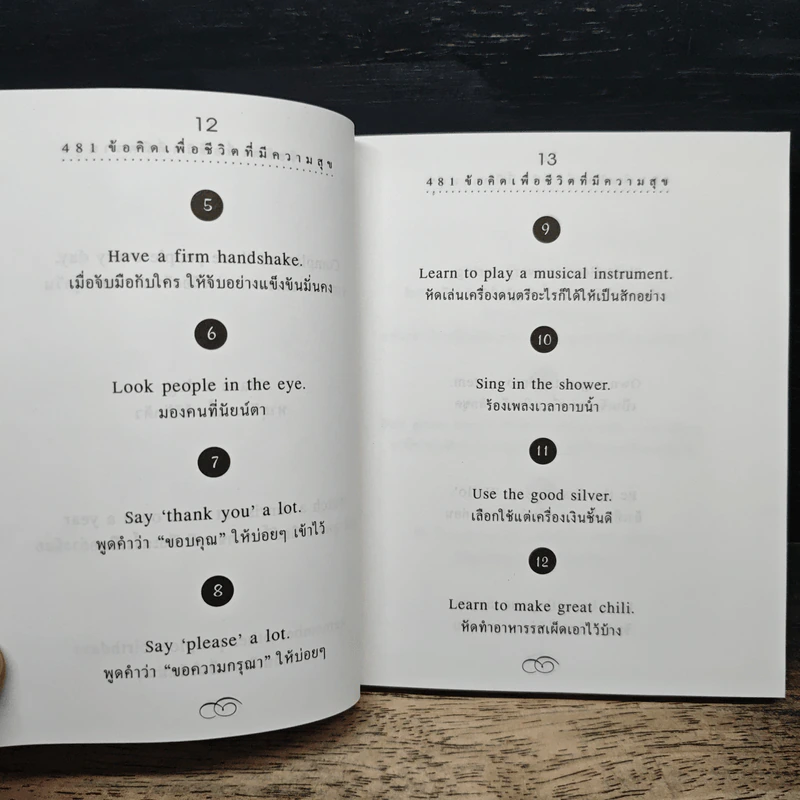 12
481 ข้อคิดเพื่อชีวิตที่มีความสุข
5
Have a firm handshake.
เมื่อจับมือกับใคร ให้จับอย่างแข็งขันมั่นคง
6
Look people in the eye.
มองคนที่นัยน์ตา
7
Say ‘thank you’ a lot.
พูดคำว่า “ขอบคุณ” ให้บ่อยๆ เข้าไว้
8
Say ‘please’ a lot.
พูดคำว่า “ขอความกรุณา” ให้บ่อยๆ
13
481 ข้อคิดเพื่อชีวิตที่มีความสุข
9
Learn to play a musical instrument.
หัดเล่นเครื่องดนตรีอะไรก็ได้ให้เป็นสักอย่าง
10
Sing in the shower.
ร้องเพลงเวลาอาบน้ำ
11
Use the good silver.
เลือกใช้แต่เครื่องเงินชั้นดี
12
Learn to make great chili.
หัดทำอาหารรสเผ็ดเอาไว้บ้าง